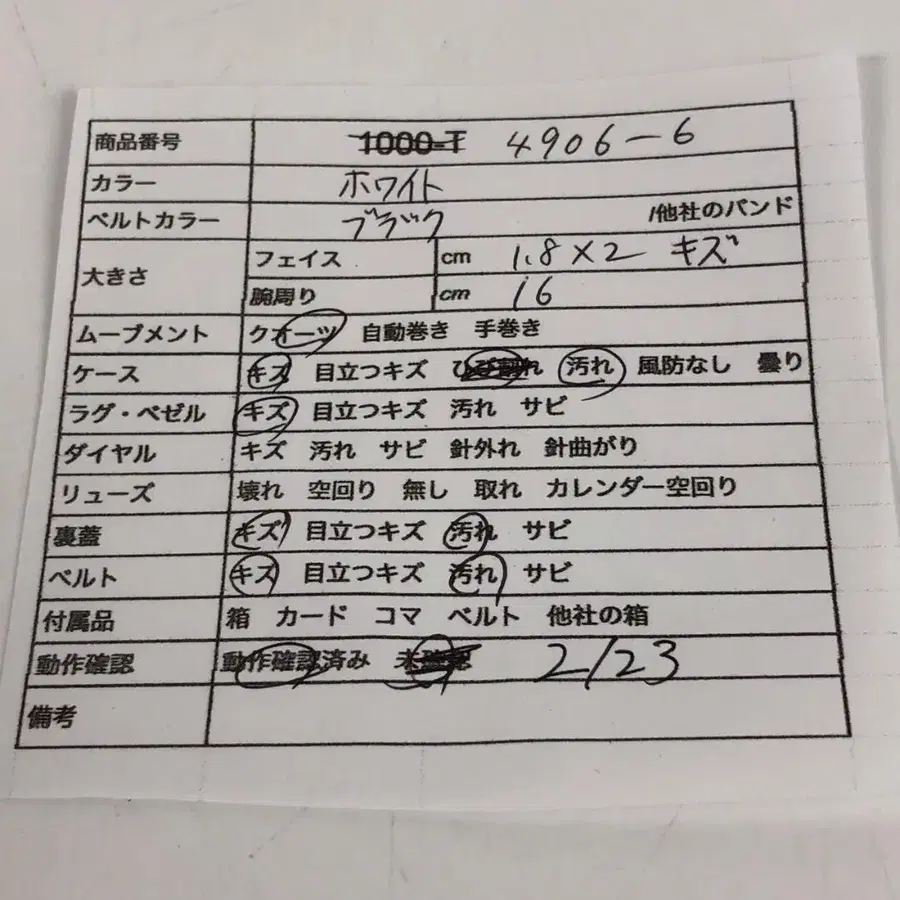 商品番号 1000-T 4906-6
カラー ホワイト
ベルトカラー ブラック /他社のバンド
大きさ フェイス cm 1.8×2 キズ
腕周り cm 16
ムーブメント クオーツ 自動巻き 手巻き
ケース キズ 目立つキズ ひび割れ 汚れ 風防なし 曇り
ラグ・ベゼル キズ 目立つキズ 汚れ サビ
ダイヤル キズ 汚れ サビ 針外れ 針曲がり
リューズ 壊れ 空回り 無し 取れ カレンダー空回り
裏蓋 キズ 目立つキズ 汚れ サビ
ベルト キズ 目立つキズ 汚れ サビ
付属品 箱 カード コマ ベルト 他社の箱
動作確認 動作確認済み 未確認 2/23
備考